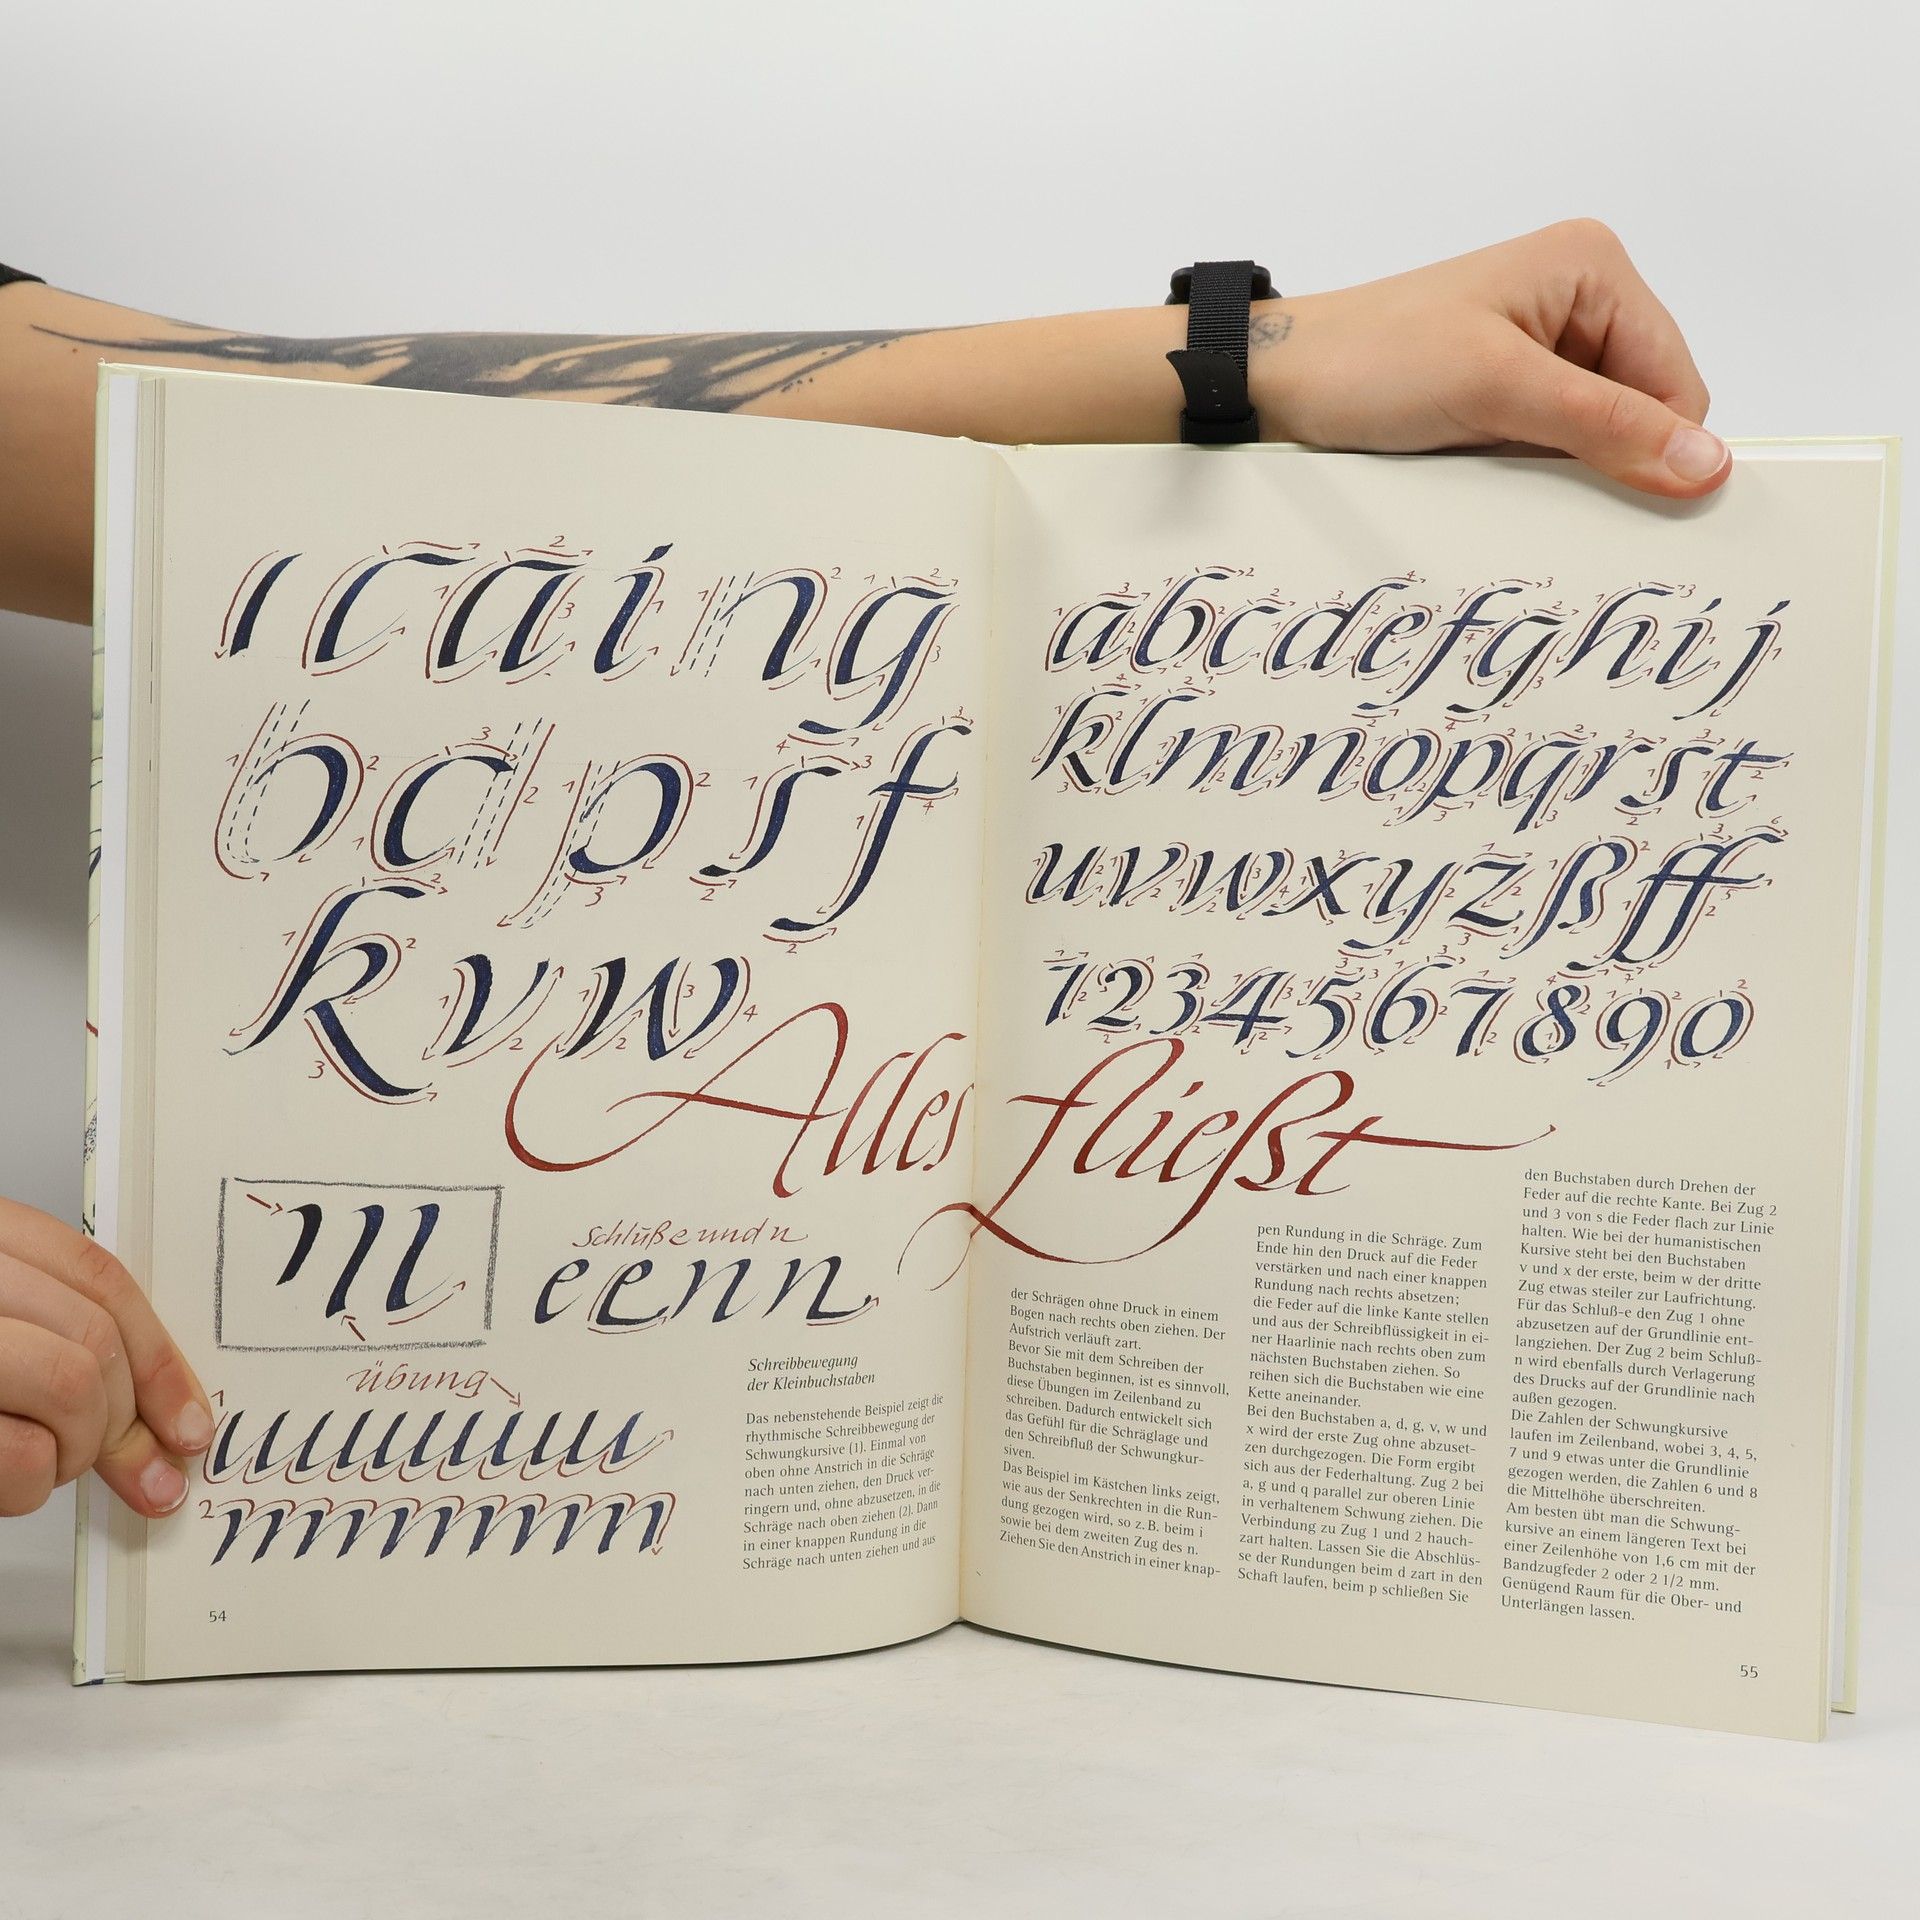 ı c a i n g
b d p s f
k v w
Alles fließt
ııı
Schluß e und n
e e n n
Übung
1
uuuuuuu
2
mmmmmm
Schreibbewegung
der Kleinbuchstaben
Das nebenstehende Beispiel zeigt die
rhythmische Schreibbewegung der
Schwungkursive (1). Einmal von
oben ohne Anstrich in die Schräge
nach unten ziehen, den Druck ver-
ringern und, ohne abzusetzen, in die
Schräge nach oben ziehen (2). Dann
in einer knappen Rundung in die
Schräge nach unten ziehen und aus
54
a b c d e f g h i j
k l m n o p q r s t
u v w x y z ß ff
1 2 3 4 5 6 7 8 9 0
der Schrägen ohne Druck in einem
Bogen nach rechts oben ziehen. Der
Aufstrich verläuft zart.
Bevor Sie mit dem Schreiben der
Buchstaben beginnen, ist es sinnvoll,
diese Übungen im Zeilenband zu
schreiben. Dadurch entwickelt sich
das Gefühl für die Schräglage und
den Schreibfluß der Schwungkur-
siven.
Das Beispiel im Kästchen links zeigt,
wie aus der Senkrechten in die Run-
dung gezogen wird, so z. B. beim i
sowie bei dem zweiten Zug des n.
Ziehen Sie den Anstrich in einer knap-
pen Rundung in die Schräge. Zum
Ende hin den Druck auf die Feder
verstärken und nach einer knappen
Rundung nach rechts absetzen;
die Feder auf die linke Kante stellen
und aus der Schreibflüssigkeit in ei-
ner Haarlinie nach rechts oben zum
nächsten Buchstaben ziehen. So
reihen sich die Buchstaben wie eine
Kette aneinander.
Bei den Buchstaben a, d, g, v, w und
x wird der erste Zug ohne abzuset-
zen durchgezogen. Die Form ergibt
sich aus der Federhaltung. Zug 2 bei
a, g und q parallel zur oberen Linie
in verhaltenem Schwung ziehen. Die
Verbindung zu Zug 1 und 2 hauch-
zart halten. Lassen Sie die Abschlüs-
se der Rundungen beim d zart in den
Schaft laufen, beim p schließen Sie
den Buchstaben durch Drehen der
Feder auf die rechte Kante. Bei Zug 2
und 3 von s die Feder flach zur Linie
halten. Wie bei der humanistischen
Kursive steht bei den Buchstaben
v und x der erste, beim w der dritte
Zug etwas steiler zur Laufrichtung.
Für das Schluß-e den Zug 1 ohne
abzusetzen auf der Grundlinie ent-
langziehen. Der Zug 2 beim Schluß-
n wird ebenfalls durch Verlagerung
des Drucks auf der Grundlinie nach
außen gezogen.
Die Zahlen der Schwungkursive
laufen im Zeilenband, wobei 3, 4, 5,
7 und 9 etwas unter die Grundlinie
gezogen werden, die Zahlen 6 und 8
die Mittelhöhe überschreiten.
Am besten übt man die Schwung-
kursive an einem längeren Text bei
einer Zeilenhöhe von 1,6 cm mit der
Bandzugfeder 2 oder 2 1/2 mm.
Genügend Raum für die Ober- und
Unterlängen lassen.
55